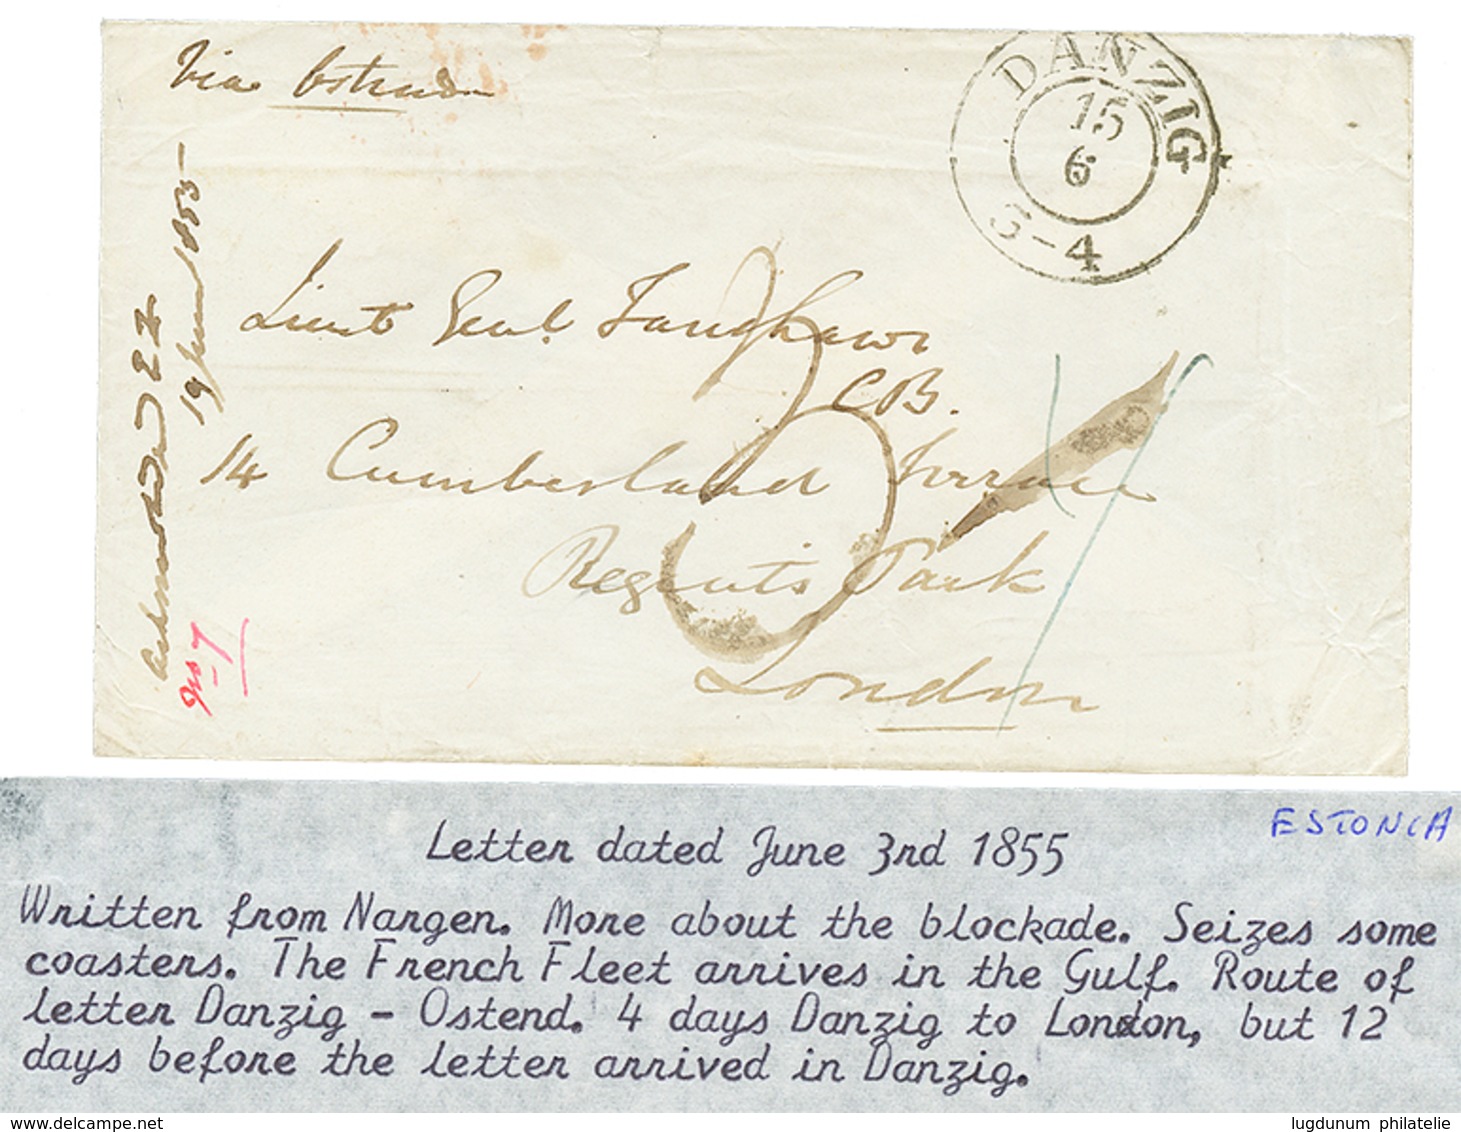 Via Ostend
DANZIG
15
6
3-4
Lieut Genl. Fanshawe
CB.
14 Cumberland Terrace
Regents Park
London
22
19 June 1855
No 7
ESTONIA
Letter dated June 3rd 1855
Written from Nargen. More about the blockade. Seizes some
coasters. The French Fleet arrives in the Gulf. Route of
letter Danzig - Ostend. 4 days Danzig to London, but 12
days before the letter arrived in Danzig.
www.delcampe.net
lugdunum philatelie